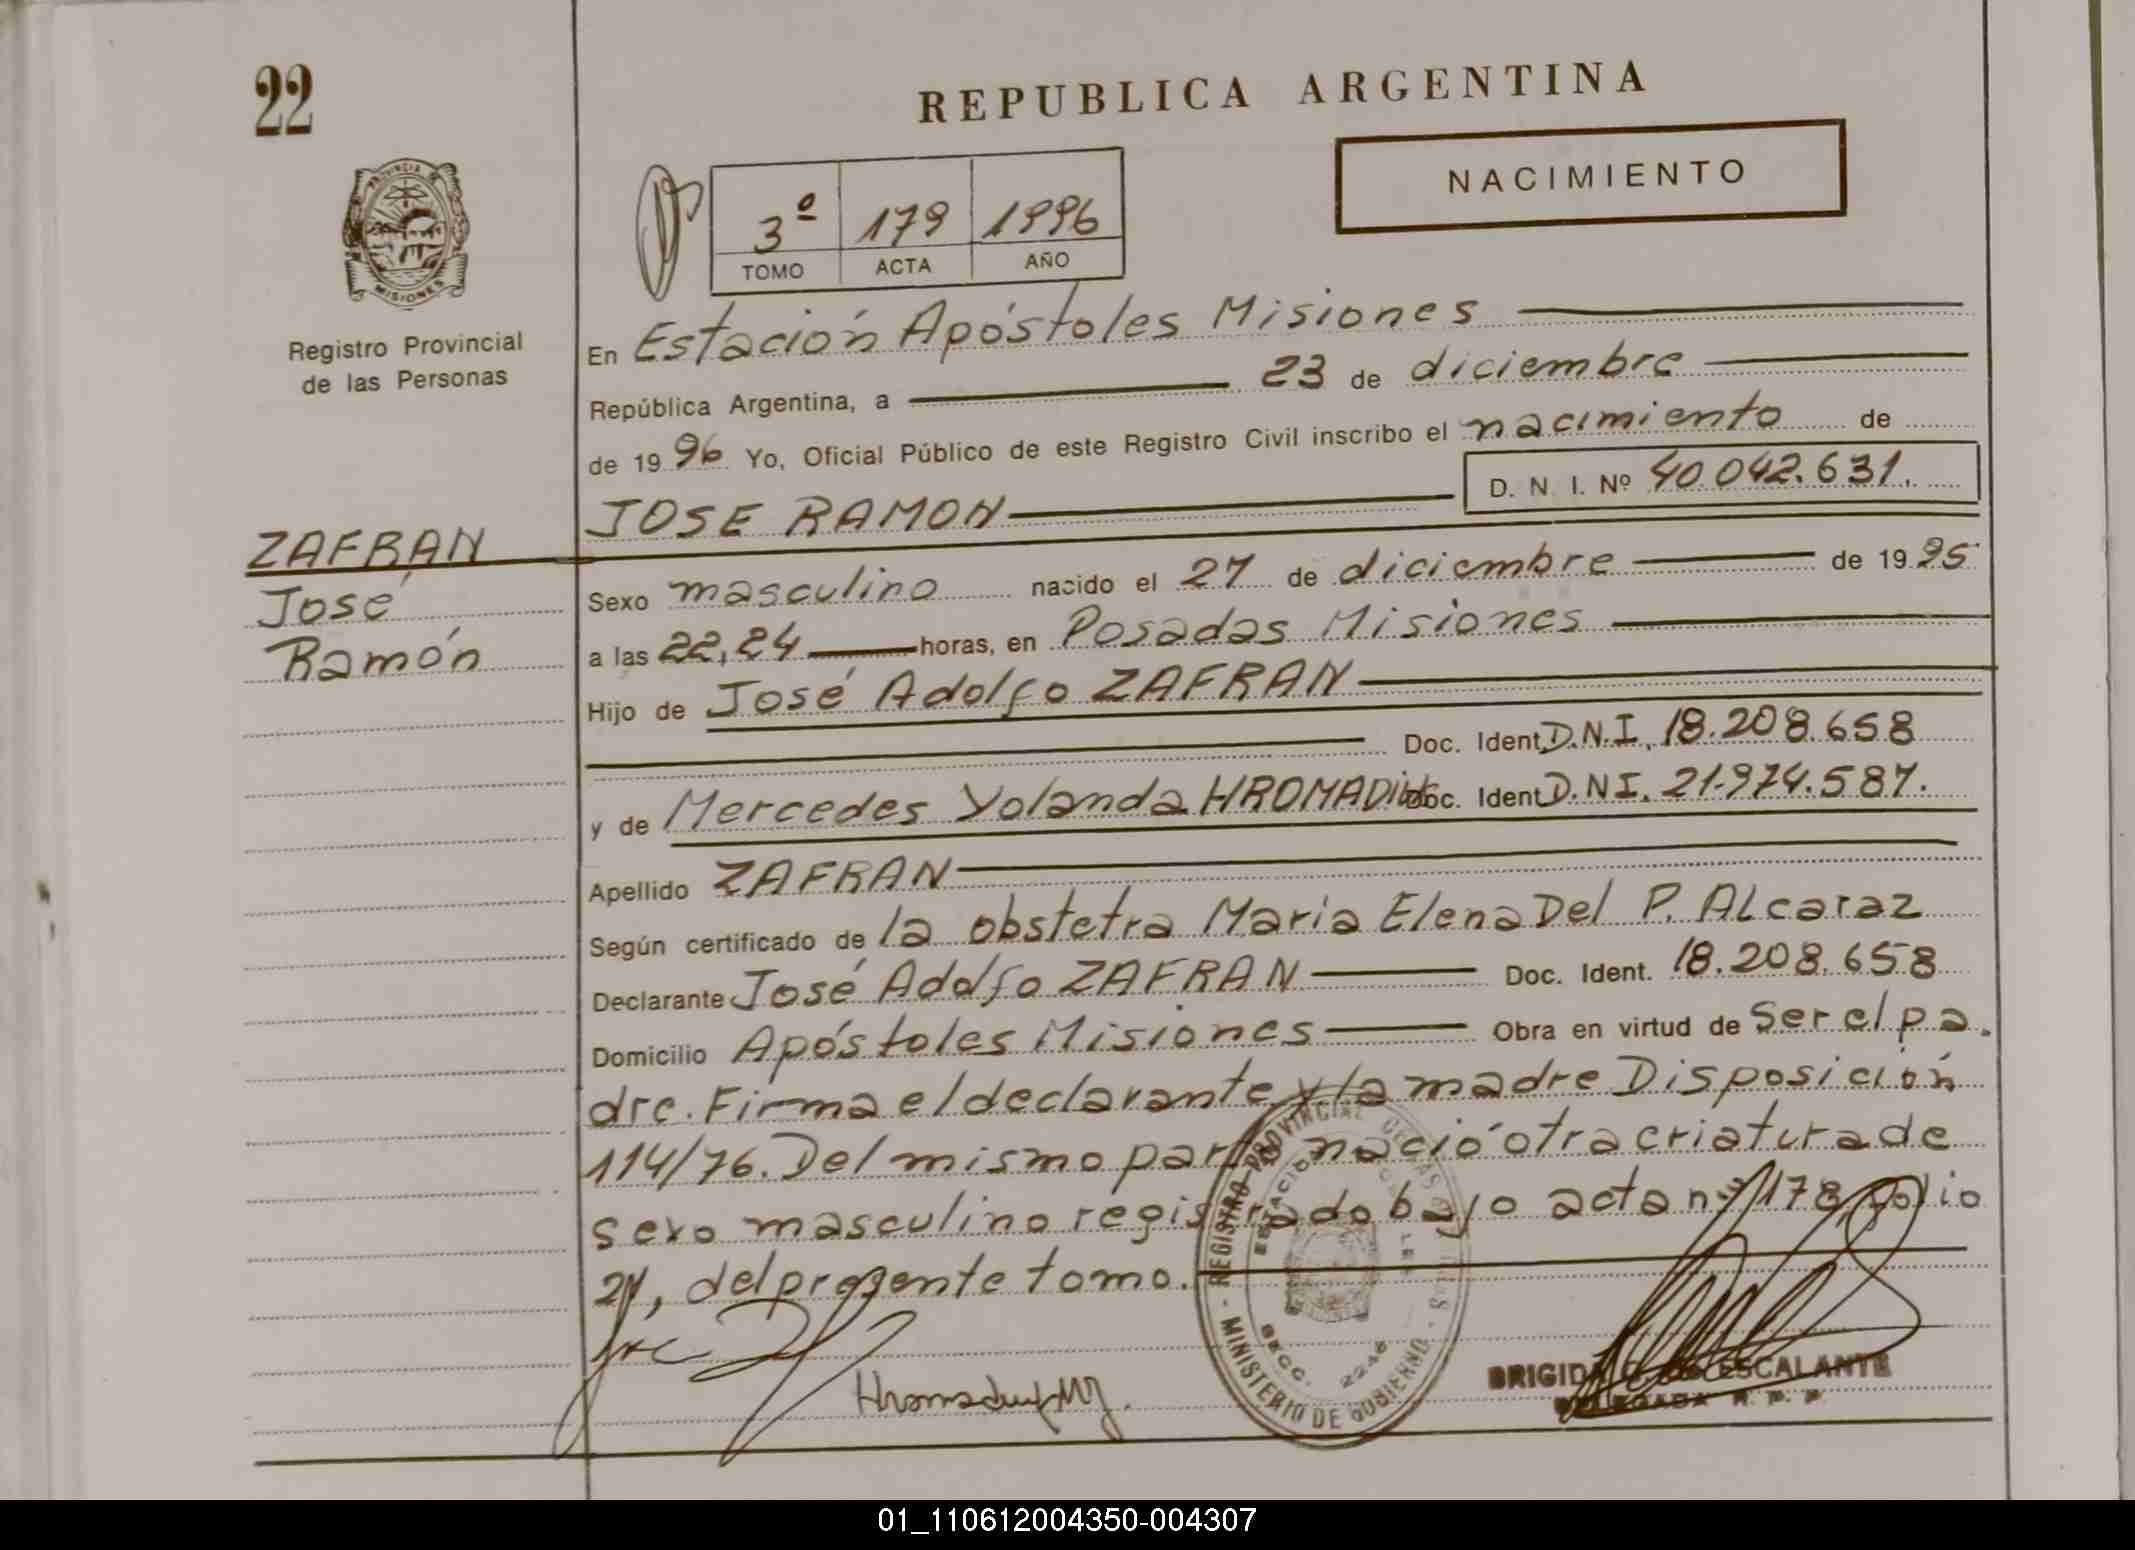 22
REPUBLICA ARGENTINA
NACIMIENTO
3º 179 1996
TOMO ACTA AÑO
PROVINCIA DE MISIONES
Registro Provincial
de las Personas
En Estación Apóstoles Misiones
República Argentina, a 23 de diciembre
de 1996 Yo, Oficial Público de este Registro Civil inscribo el nacimiento de
JOSE RAMON D. N. I. Nº 40.042.631.
ZAFRAN
José
Ramón
Sexo masculino nacido el 27 de diciembre de 1995
a las 22,24 horas, en Posadas Misiones
Hijo de José Adolfo ZAFRAN
Doc. Ident. D.N.I. 18.208.658
y de Mercedes Yolanda Doc. Ident. D.N.I. 21.974.587.
Apellido ZAFRAN
Según certificado de la obstetra Maria Elena Del P. ALcaraz
Declarante José Adolfo ZAFRAN Doc. Ident. 18.208.658
Domicilio Apóstoles Misiones Obra en virtud de Ser el pa.
dre. Firma el declarante y la madre Disposición
114/76. Del mismo parto nació otra criatura de
sexo masculino registrado bajo acta nº 178, folio
21, del presente tomo.
REGISTRO PROVINCIAL DE LAS PERSONAS
MINISTERIO DE GOBIERNO
SECC. 2246
BRIGIDA ESCALANTE
DELEGADA R. P. P.
01_110612004350-004307